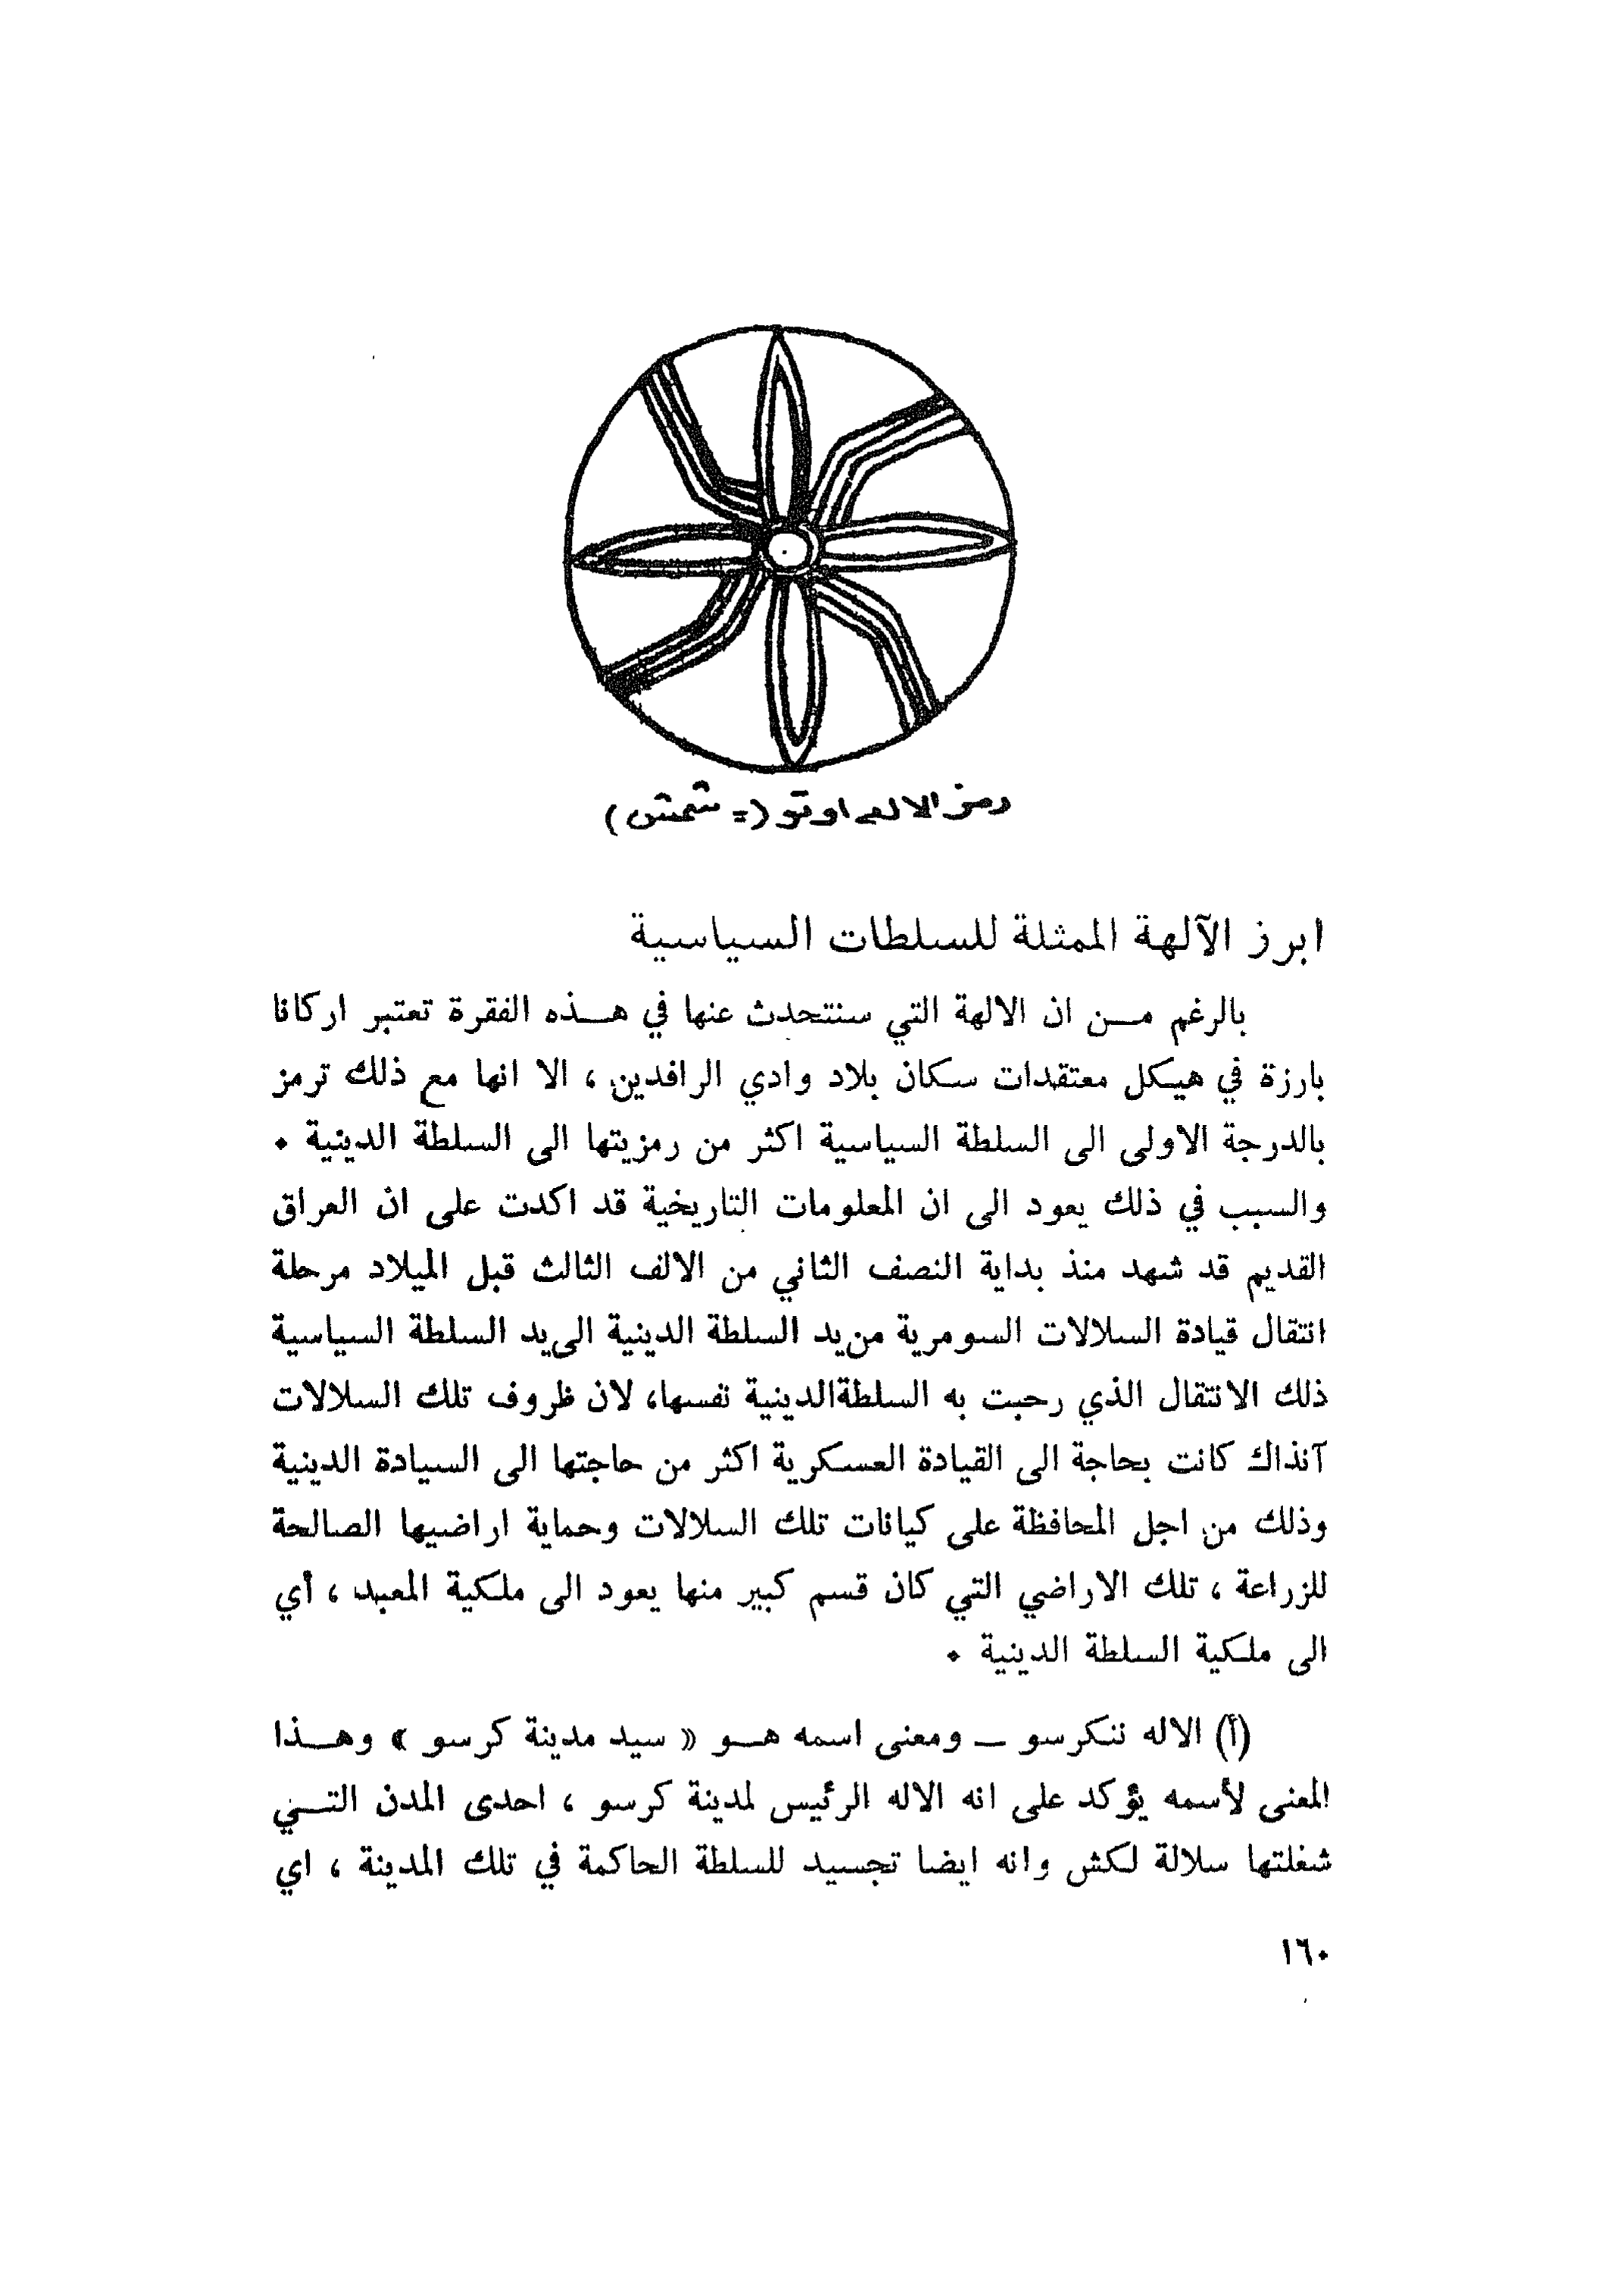 رمز الاله اوتو (= شمش)
ابرز الآلهة الممثلة للسلطات السياسية
بالرغم مــن ان الالهة التي سنتحدث عنها في هــذه الفقرة تعتبر اركانا
بارزة في هيكل معتقدات سكان بلاد وادي الرافدين ، الا انها مع ذلك ترمز
بالدرجة الاولى الى السلطة السياسية اكثر من رمزيتها الى السلطة الدينية .
والسبب في ذلك يعود الى ان المعلومات التاريخية قد اكدت على ان العراق
القديم قد شهد منذ بداية النصف الثاني من الالف الثالث قبل الميلاد مرحلة
انتقال قيادة السلالات السومرية من يد السلطة الدينية الى يد السلطة السياسية
ذلك الانتقال الذي رحبت به السلطة الدينية نفسها، لان ظروف تلك السلالات
آنذاك كانت بحاجة الى القيادة العسكرية اكثر من حاجتها الى السيادة الدينية
وذلك من اجل المحافظة على كيانات تلك السلالات وحماية اراضيها الصالحة
للزراعة ، تلك الاراضي التي كان قسم كبير منها يعود الى ملكية المعبد ، أي
الى ملكية السلطة الدينية .
(أ) الاله ننكرسو ــ ومعنى اسمه هــو « سيد مدينة كرسو » وهــذا
المعنى لأسمه يؤكد على انه الاله الرئيس لمدينة كرسو ، احدى المدن التــي
شغلتها سلالة لكش وانه ايضا تجسيد للسلطة الحاكمة في تلك المدينة ، اي
١٦٠